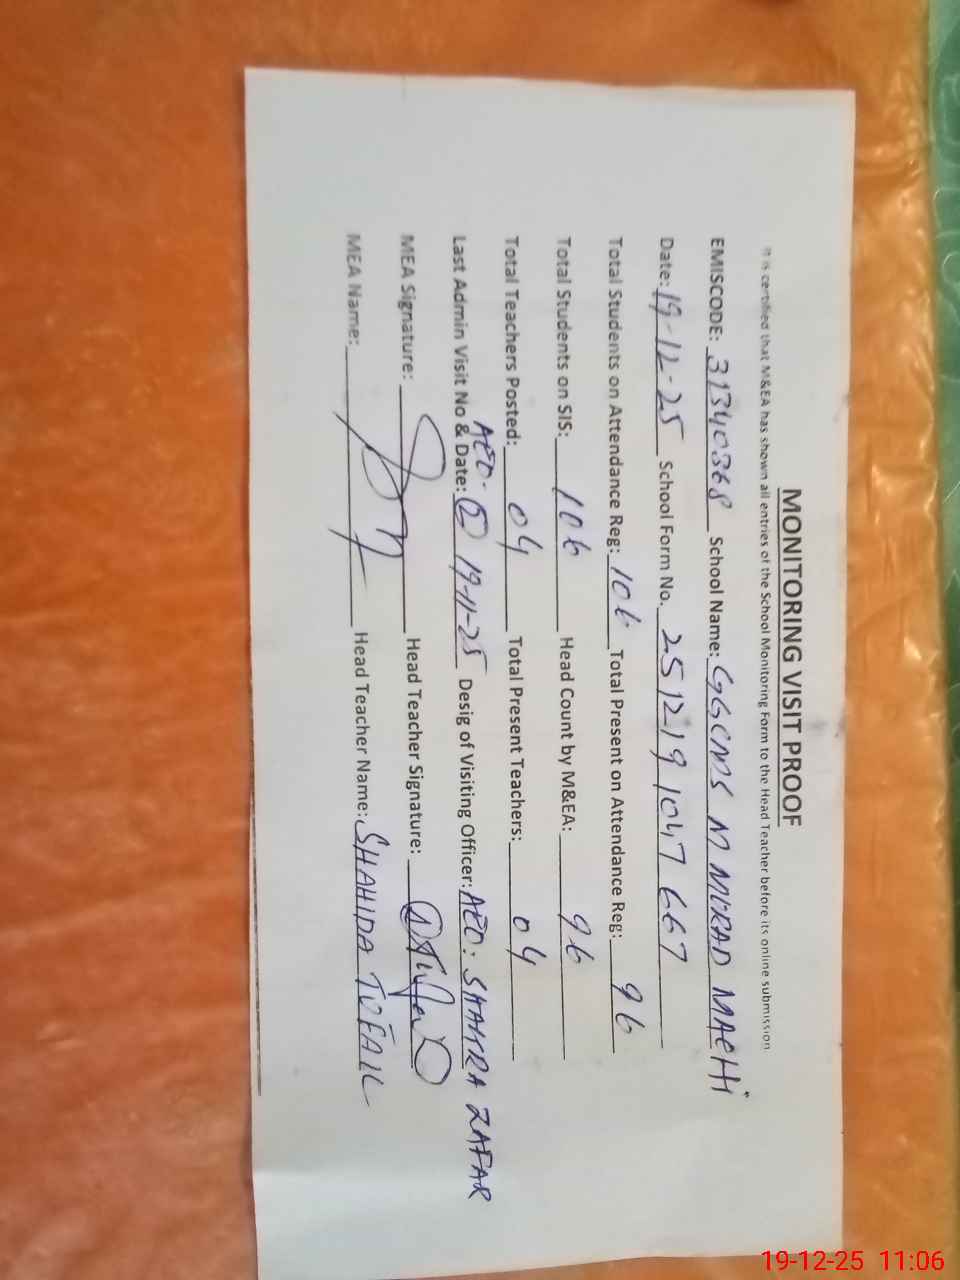 MONITORING VISIT PROOF
It is certified that M&EA has shown all entries of the School Monitoring Form to the Head Teacher before its online submission
EMISCODE: 31340368 School Name: GGCMS M MURAD MACHHi
Date: 19-12-25 School Form No. 2512191047667
Total Students on Attendance Reg: 106 Total Present on Attendance Reg: 96
Total Students on SIS: 106 Head Count by M&EA: 96
Total Teachers Posted: 04 Total Present Teachers: 04
Last Admin Visit No & Date: AEO- 19-11-25 Desig of Visiting Officer: AEO: ZAFAR
MEA Signature: Head Teacher Signature:
MEA Name: Head Teacher Name: SHAHIDA TUFAIL
19-12-25 11:06